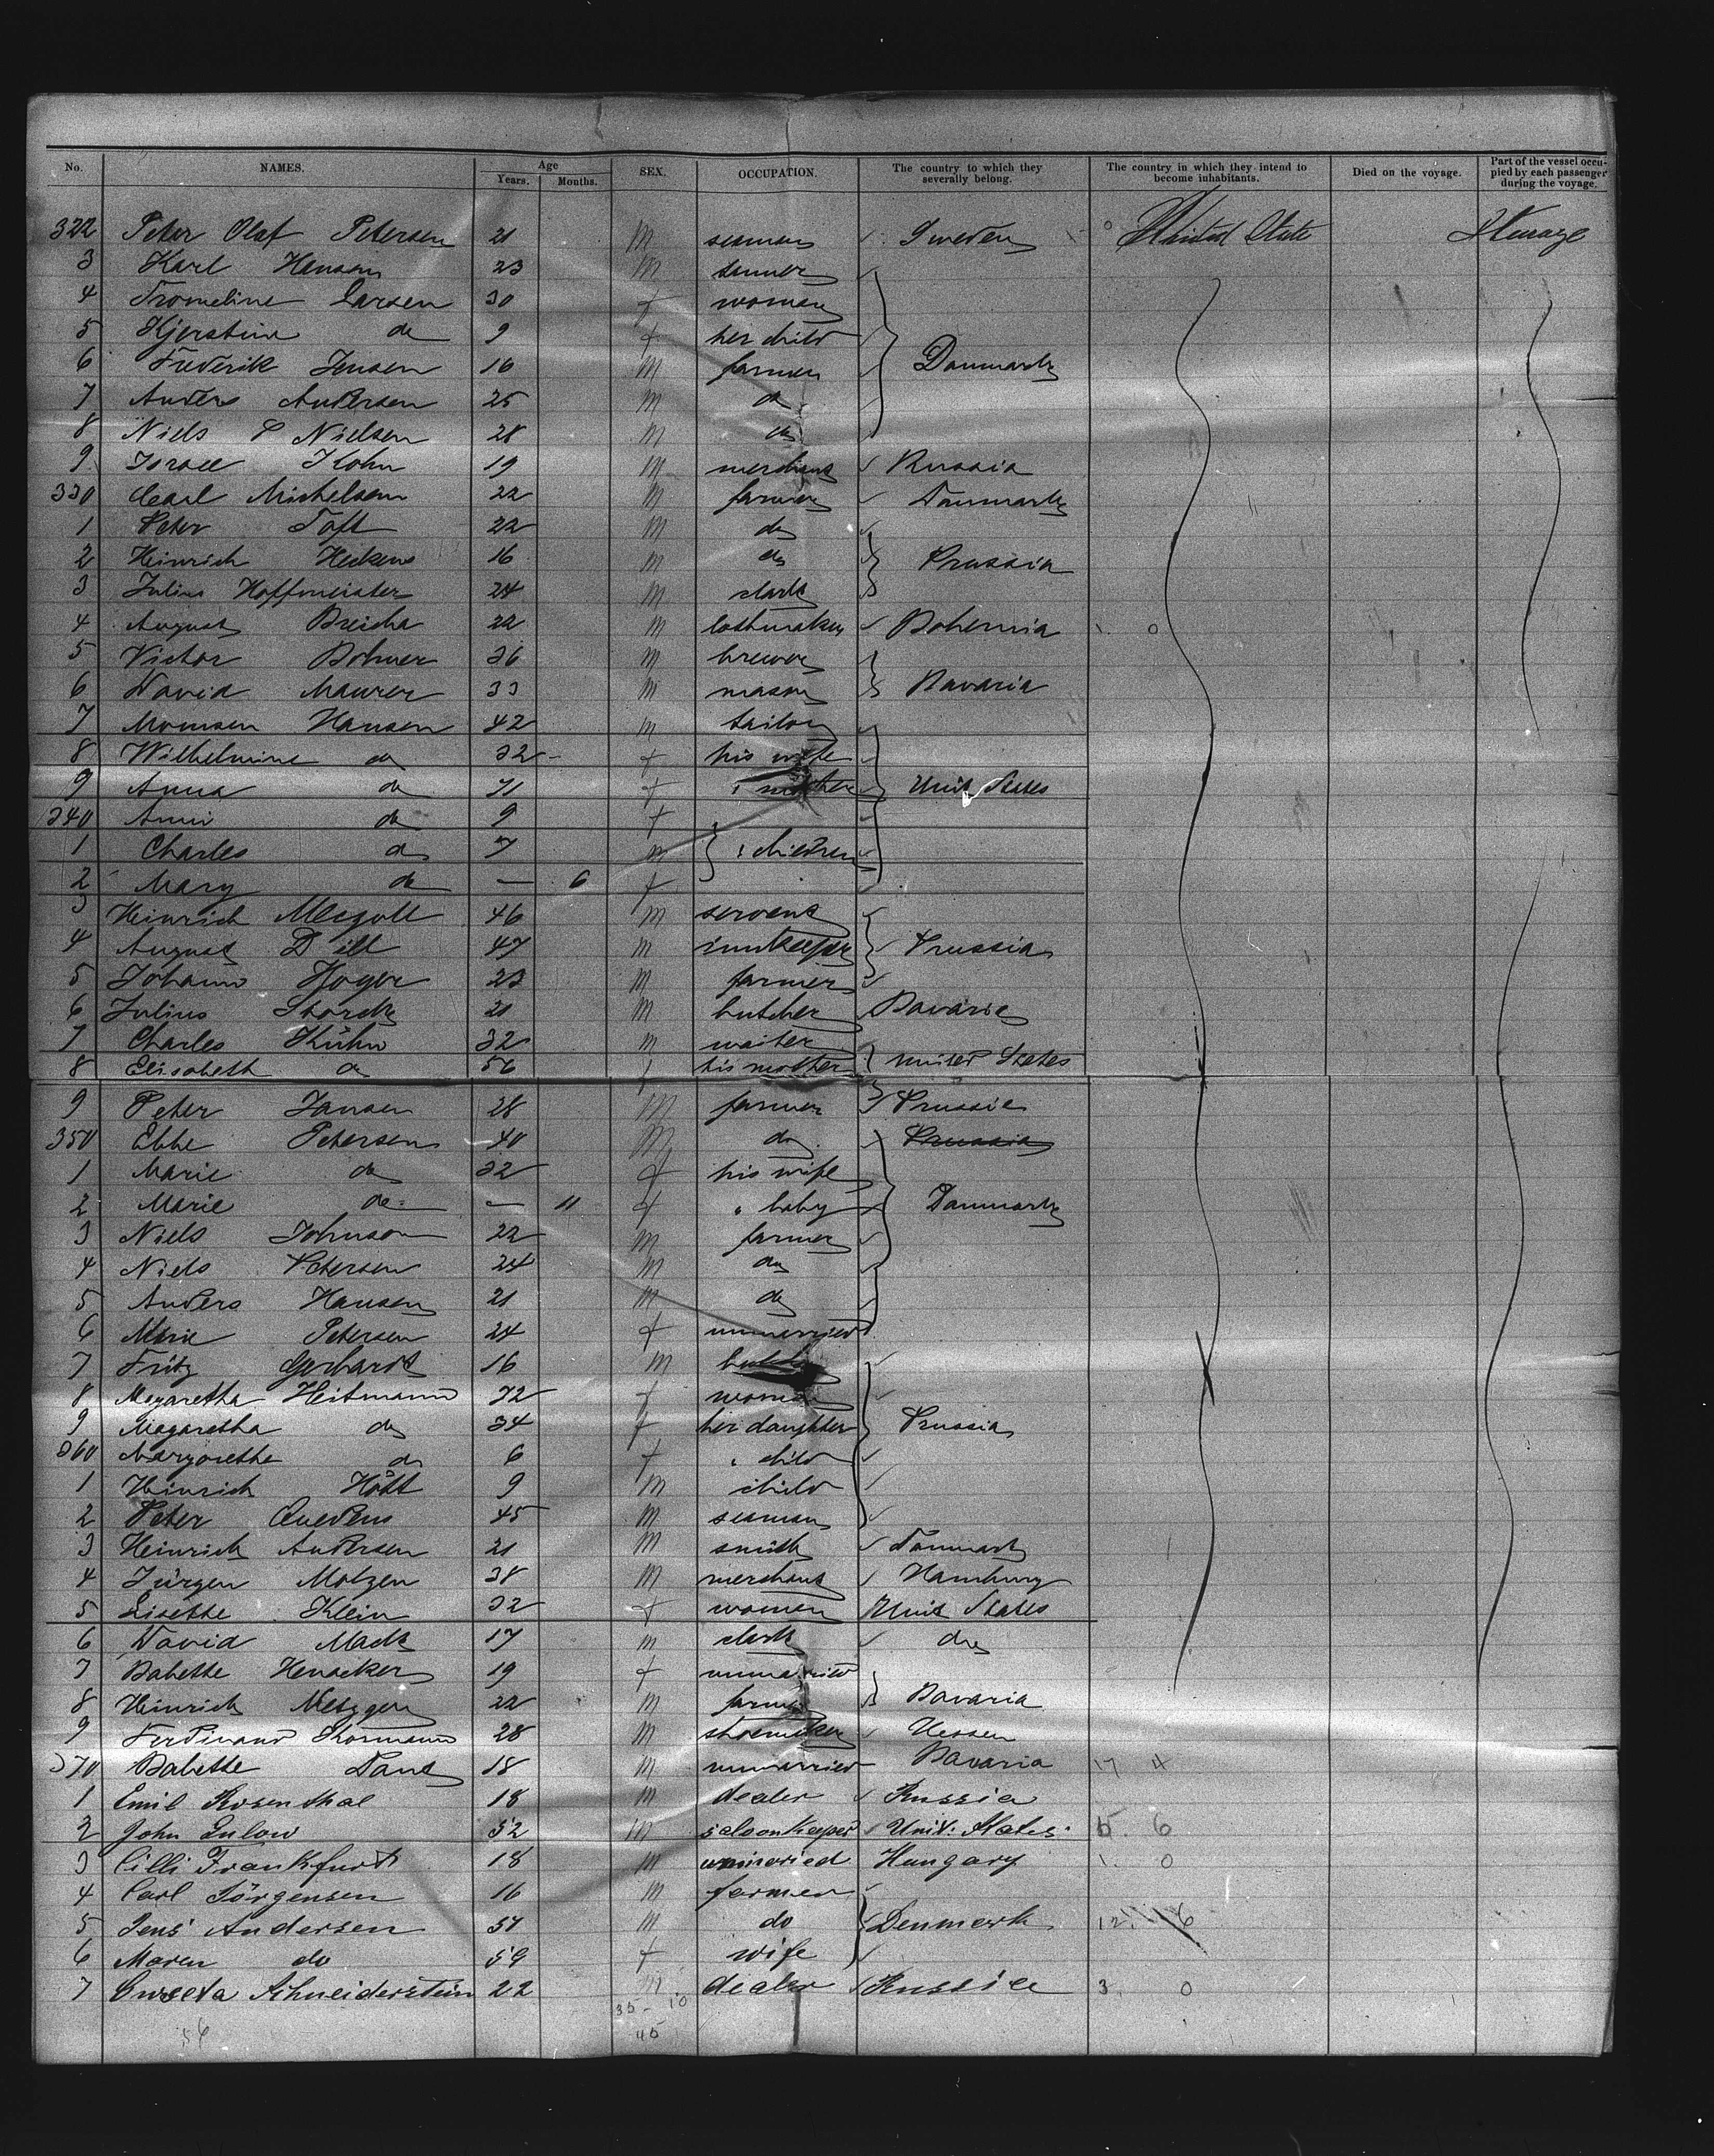 No. NAMES. Age Years. Months. SEX. OCCUPATION. The country to which they severally belong. The country in which they intend to become inhabitants. Died on the voyage. Part of the vessel occupied by each passenger during the voyage.
322 Peter Olaf Petersen 21 M seaman Sweden United State Steerage
3 Karl Hansen 23 M
4 Larsen 30 f woman
5 Kjerstine do 9 f her child
6 Frederik Jensen 16 M farmer Danmark
7 Anders Andersen 25 M do
8 Niels P Nielsen 28 M do
9 Israel Kohn 19 M merchant Russia
330 Carl Michelsen 22 M farmer Danmark
1 Peter Toft 22 M do
2 Heinrich Heckens 16 M do Prussia
3 Julius Hoffmeister 24 M clark
4 August 22 M Bohemia
5 Victor 36 M brewer
6 David Maurer 33 M mason Bavaria
7 Momsen Hansen 42 M tailor
8 Wilhelmine do 32 f his wife
9 Anna do 71 f " mother Unit States
340 Anni do 9 f
1 Charles do 7 m " children
2 Mary do — 6 f
3 Heinrich 46 M servant
4 August Dill 47 M innkeeper Prussia
5 Johann Hoger 23 M farmer
6 Julius Storck 21 M butcher Bavaria
7 Charles Kühn 32 M waiter
8 Elisabeth do 56 f his mother United States
9 Peter Jansen 28 M farmer Prussia
350 Ebbe Petersen 40 M do Prussia
1 Marie do 32 f his wife
2 Marie do — 11 f " baby Danmark
3 Niels Johnson 22 M farmer
4 Niels Petersen 24 M do
5 Anders Hansen 21 M do
6 Marie Petersen 24 f unmarried
7 Fritz Gerhardt 16 M
8 Megaretha Heitmann 72 f woman
9 Magaretha do 34 f her daughter Prussia
360 Margarethe do 6 f " child
1 Heinrich Hött 9 M child
2 Peter Quedens 45 M seaman
3 Heinrich Andersen 21 M smith Danmark
4 Jürgen Molzen 38 M merchant Hamburg
5 Lisette Klein 32 f women Unit States
6 David Mack 17 M clark do
7 Babette Henacker 19 f unmarried
8 Heinrich Metzger 22 M farmer Bavaria
9 Ferdinand 28 M shoemaker Hessen
370 Babette 18 M unmarried Bavaria 17 4
1 Emil Rosenthal 18 M dealer Russia
2 John Lulow 52 M saloonkeeper Unit: States 6
3 Cilli Frankfurt 18 M unmaried Hungary 1 0
4 Carl Jörgensen 16 M farmer
5 Jens Andersen 57 M do Denmark 12 6
6 Maren do 59 f wife
7 Schneiderstein 22 M dealer Russia 3 0
35 - 10
45
56